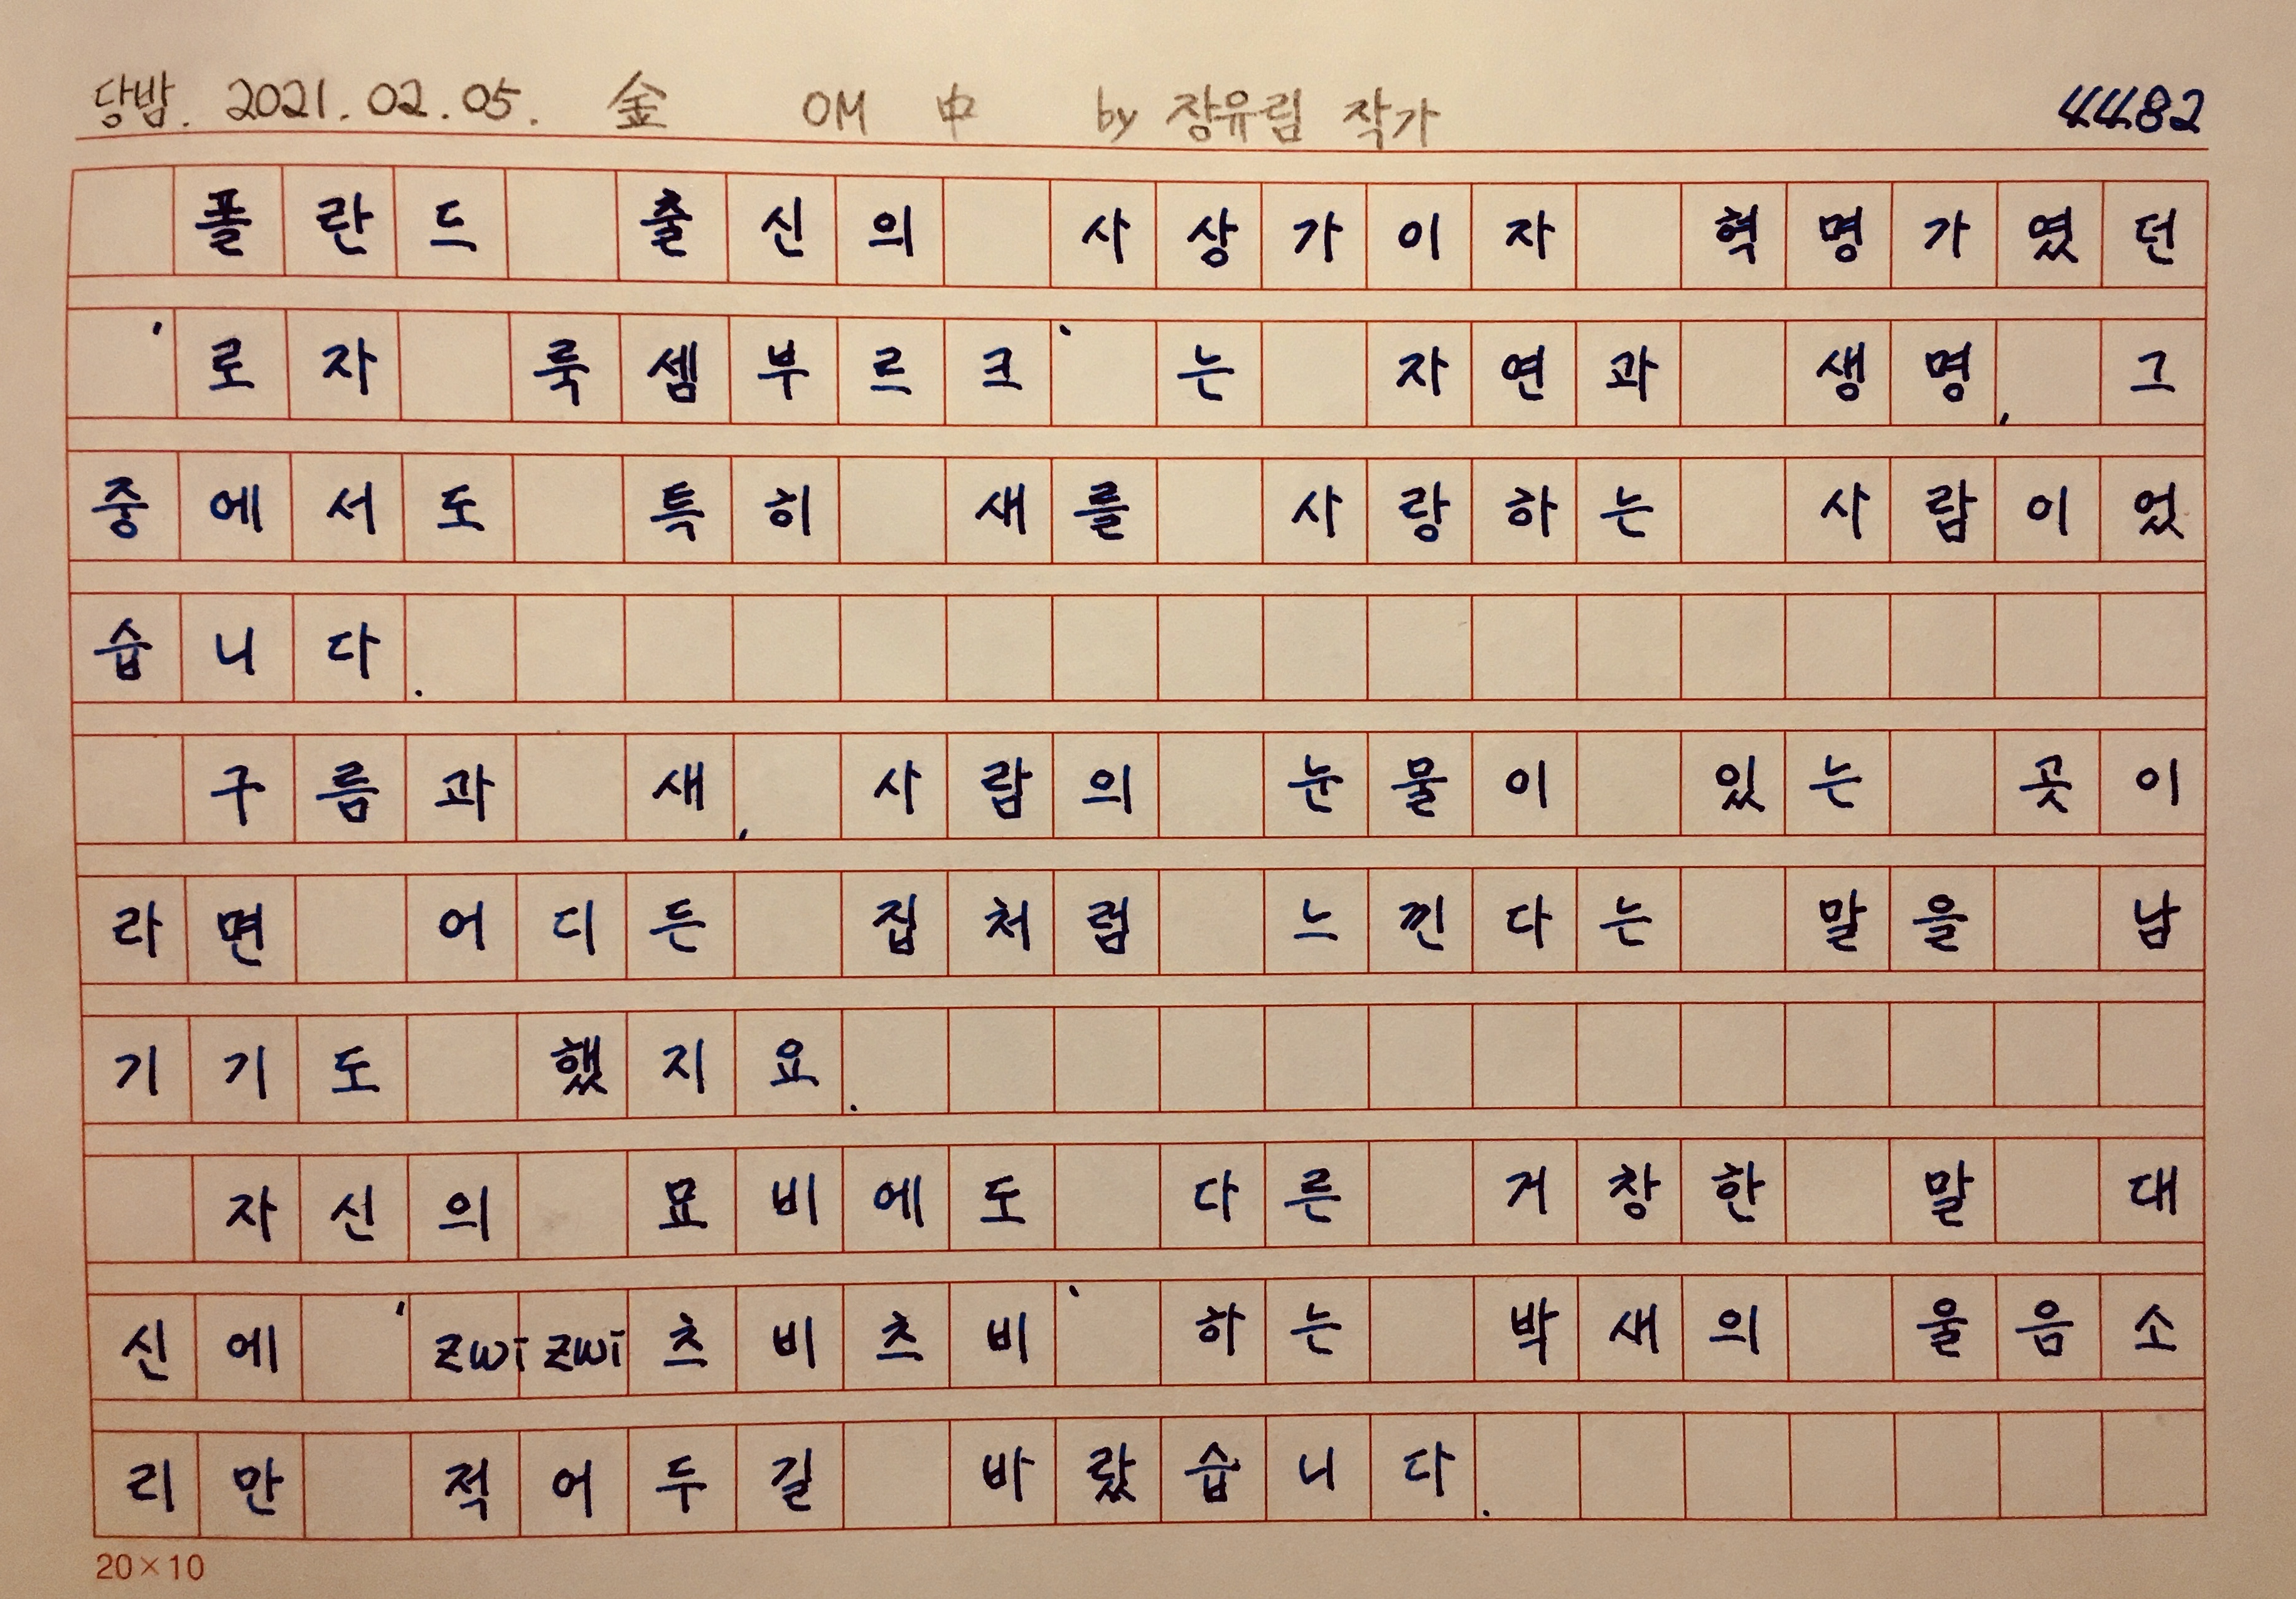 당밤. 2021.02.05. 金 OM 中 by 장유림 작가 4482
폴란드 출신의 사상가이자 혁명가였던
'로자 룩셈부르크'는 자연과 생명, 그
중에서도 특히 새를 사랑하는 사람이었
습니다.
구름과 새, 사람의 눈물이 있는 곳이
라면 어디든 집처럼 느낀다는 말을 남
기기도 했지요.
자신의 묘비에도 다른 거창한 말 대
신에 'zwi zwi 츠비츠비' 하는 박새의 울음소
리만 적어두길 바랐습니다.
20×10